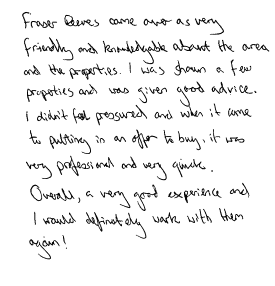 Fraser Reeves came over as very
friendly and knowledgable about the area
and the properties. I was shown a few
properties and was given good advice.
I didn't feel pressured and when it came
to putting in an offer to buy, it was
very professional and very quick.
Overall, a very good experience and
I would definately work with them
again!